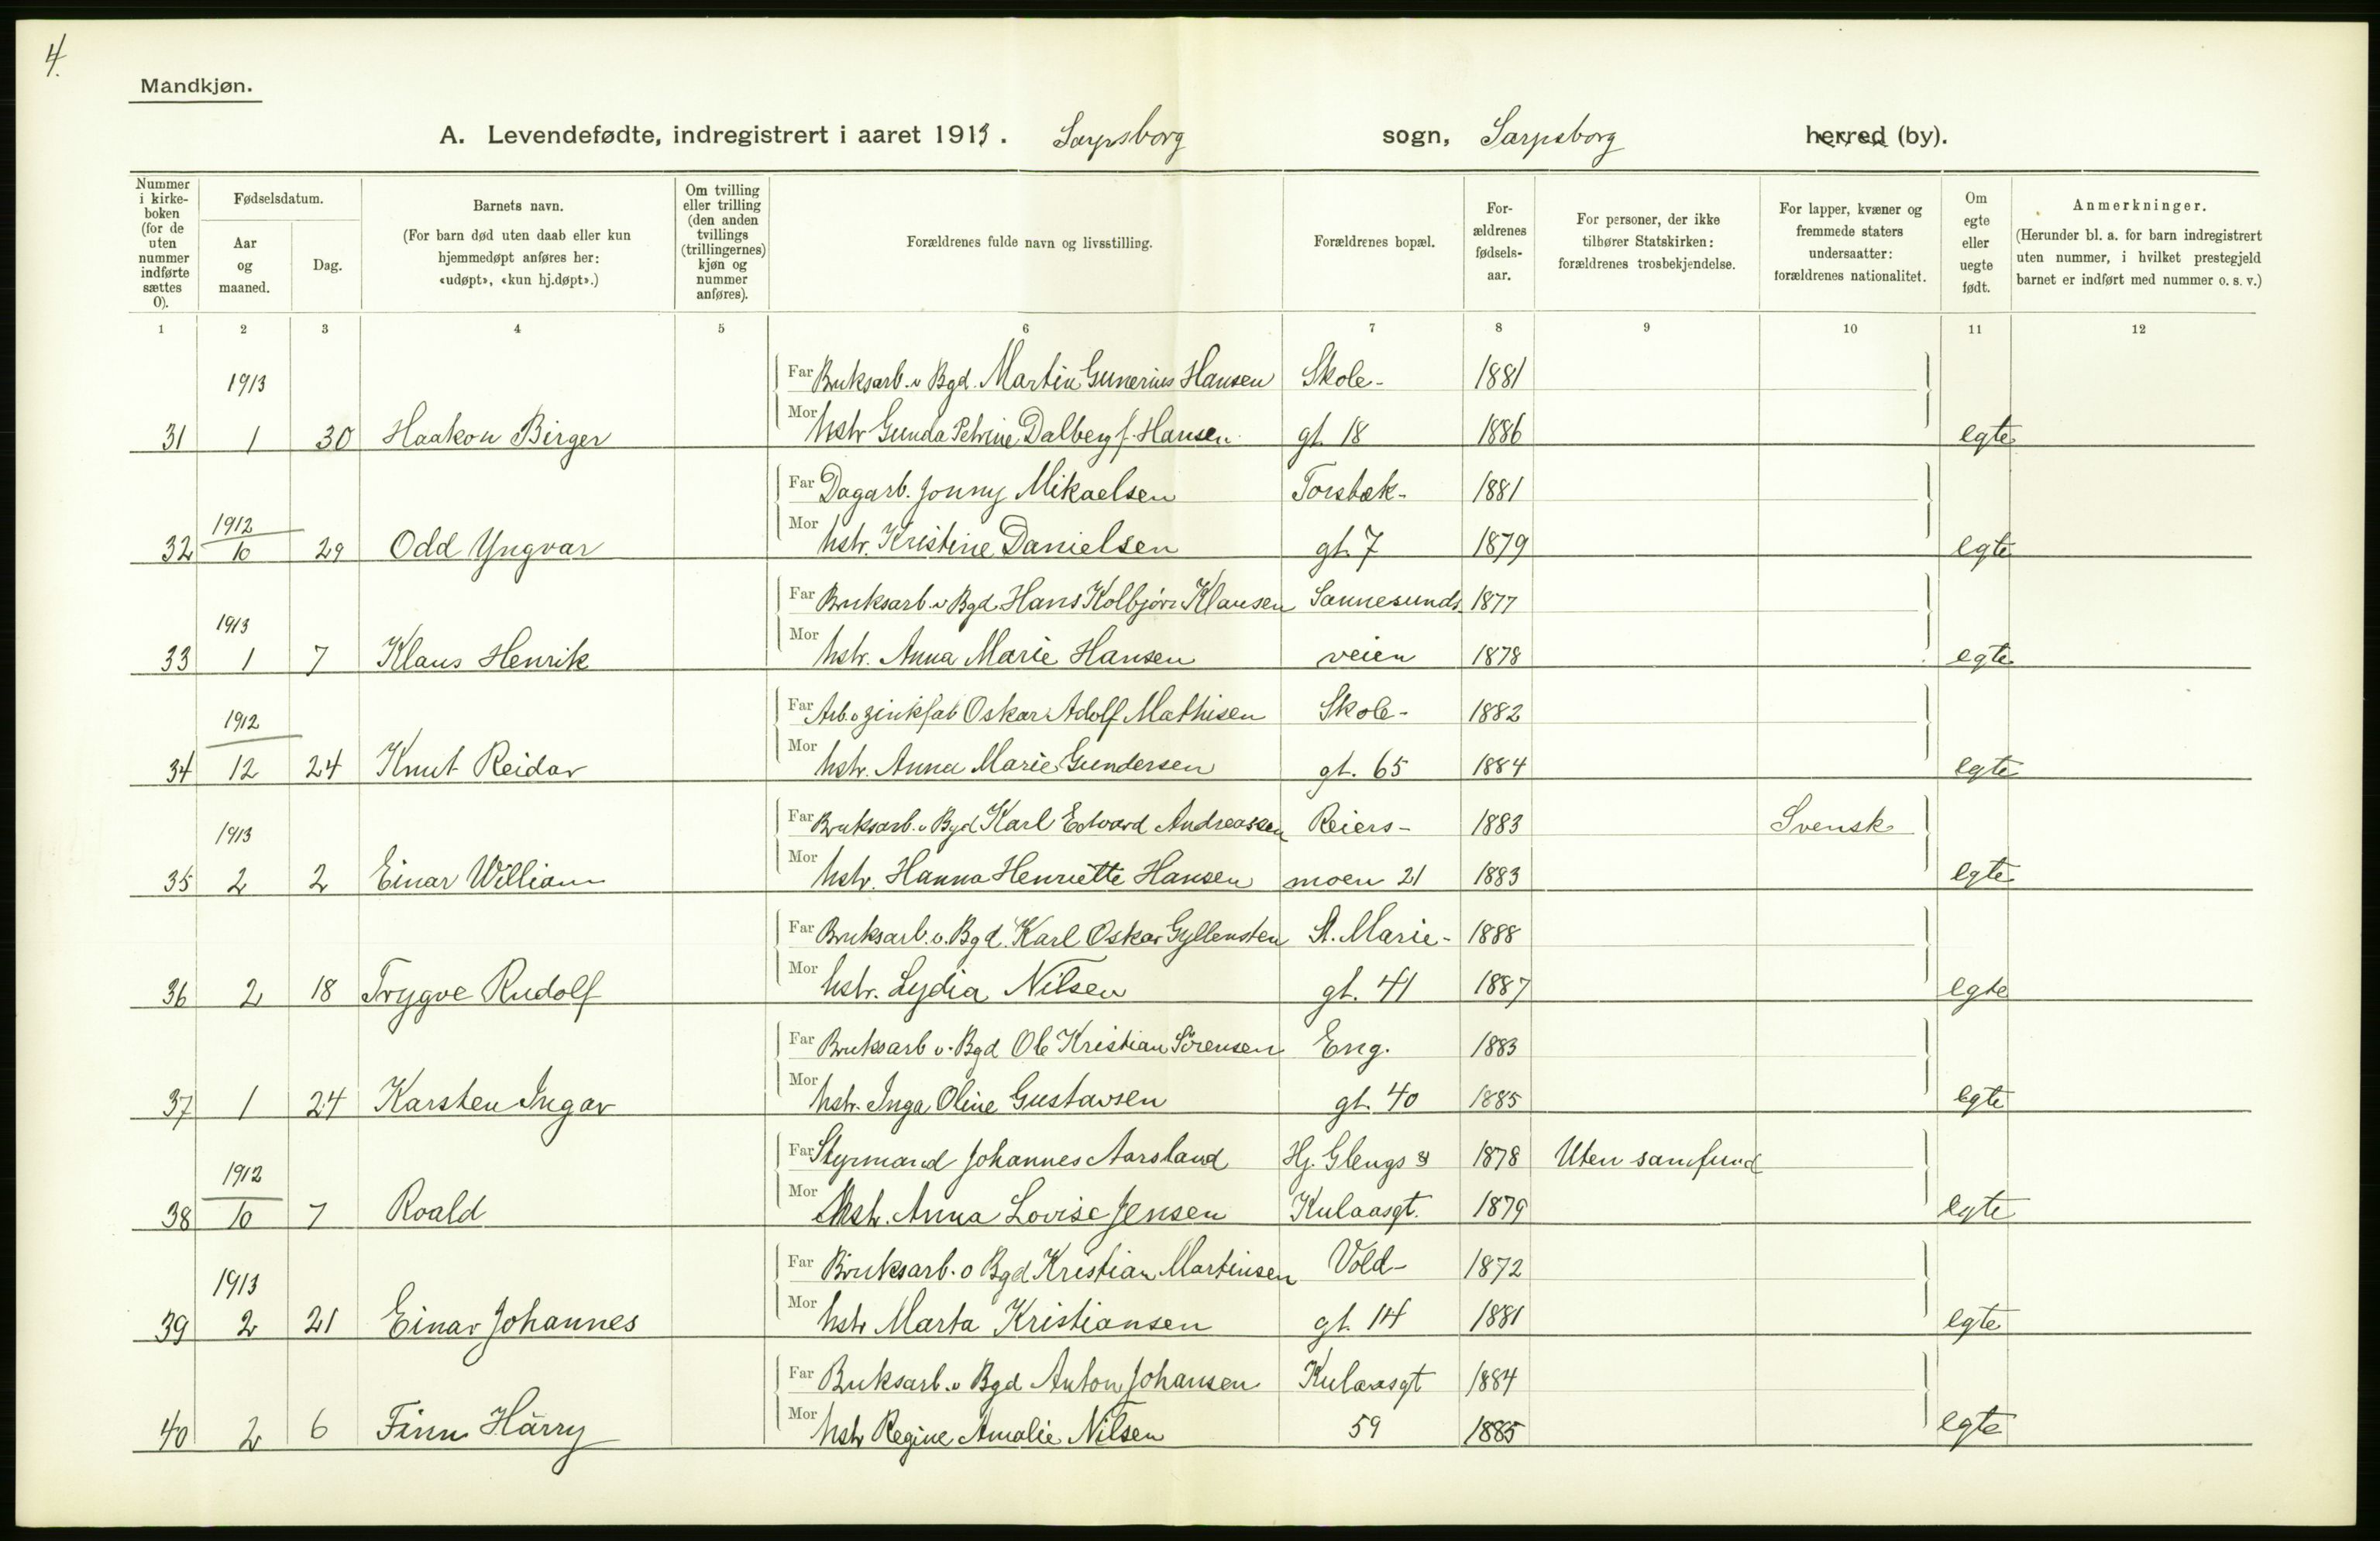 4.
Mandkjøn.
A. Levendefødte, indregistrert i aaret 1913. Sarpsborg sogn, Sarpsborg herred (by).
Nummer i kirke-boken (for de uten nummer indførte sættes 0).
Fødselsdatum.
Aar og maaned.
Dag.
Barnets navn.
(For barn død uten daab eller kun hjemmedøpt anføres her: «udøpt», «kun hj.døpt».)
Om tvilling eller trilling (den anden tvillings (trillingernes) kjøn og nummer anføres).
Forældrenes fulde navn og livsstilling.
Forældrenes bopæl.
For-ældrenes fødsels-aar.
For personer, der ikke tilhører Statskirken: forældrenes trosbekjendelse.
For lapper, kvæner og fremmede staters undersaatter: forældrenes nationalitet.
Om egte eller uegte født.
Anmerkninger.
(Herunder bl. a. for barn indregistrert uten nummer, i hvilket prestegjeld barnet er indført med nummer o. s. v.)
1 2 3 4 5 6 7 8 9 10 11 12
1913 Far Bruksarb. v Bgd. Martin Gunerius Hansen Skole- 1881
31 1 30 Haakon Birger Mor hstr Gunda Petrine Dalberg f. Hansen gt. 18 1886 egte
Far Dagarb. Jonny Mikaelsen Torsbæk- 1881
32 1912 10 29 Odd Yngvar Mor hstr. Kristine Danielsen gt. 7 1879 egte
Far Bruksarb. v Bgd. Hans Kolbjörn Klausen Sannesunds- 1877
33 1913 1 7 Klaus Henrik Mor hstr. Anna Marie Hansen veien 1878 egte
Far Arb. v zinkfab Oskar Adolf Mathisen Skole- 1882
34 1912 12 24 Knut Reidar Mor hstr. Anna Marie Gundersen gt. 65 1884 egte
1913 Far Bruksarb. v Bgd Karl Edvard Andreassen Reiers- 1883 Svensk
35 2 2 Einar William Mor hstr. Hanna Henriette Hansen moen 21 1883 egte
Far Bruksarb. v. Bgd. Karl Oskar Gyllensten St. Marie- 1888
36 2 18 Trygve Rudolf Mor hstr. Lydia Nilsen gt. 41 1887 egte
Far Bruksarb v. Bgd Ole Kristian Sörensen Eng. 1883
37 1 24 Karsten Ingar Mor hstr. Inga Oline Gustavsen gt. 40 1885 egte
Far Styrmand Johannes Aarsland Hj. Glengs & 1878 Uten samfund
38 1912 10 7 Roald Mor hstr. Anna Lovise Jensen Kulaasgt. 1879 egte
Far Bruksarb. v Bgd Kristian Martinsen Vold- 1872
39 1913 2 21 Einar Johannes Mor hstr Marta Kristiansen gt. 14 1881 egte
Far Bruksarb. v Bgd Anton Johansen Kulaasgt 1884
40 2 6 Finn Harry Mor hstr Regine Amalie Nilsen 59 1885 egte